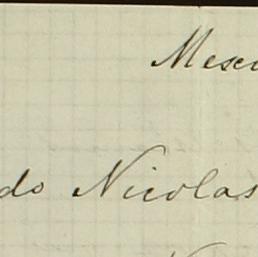 Mexi
do Nicolas